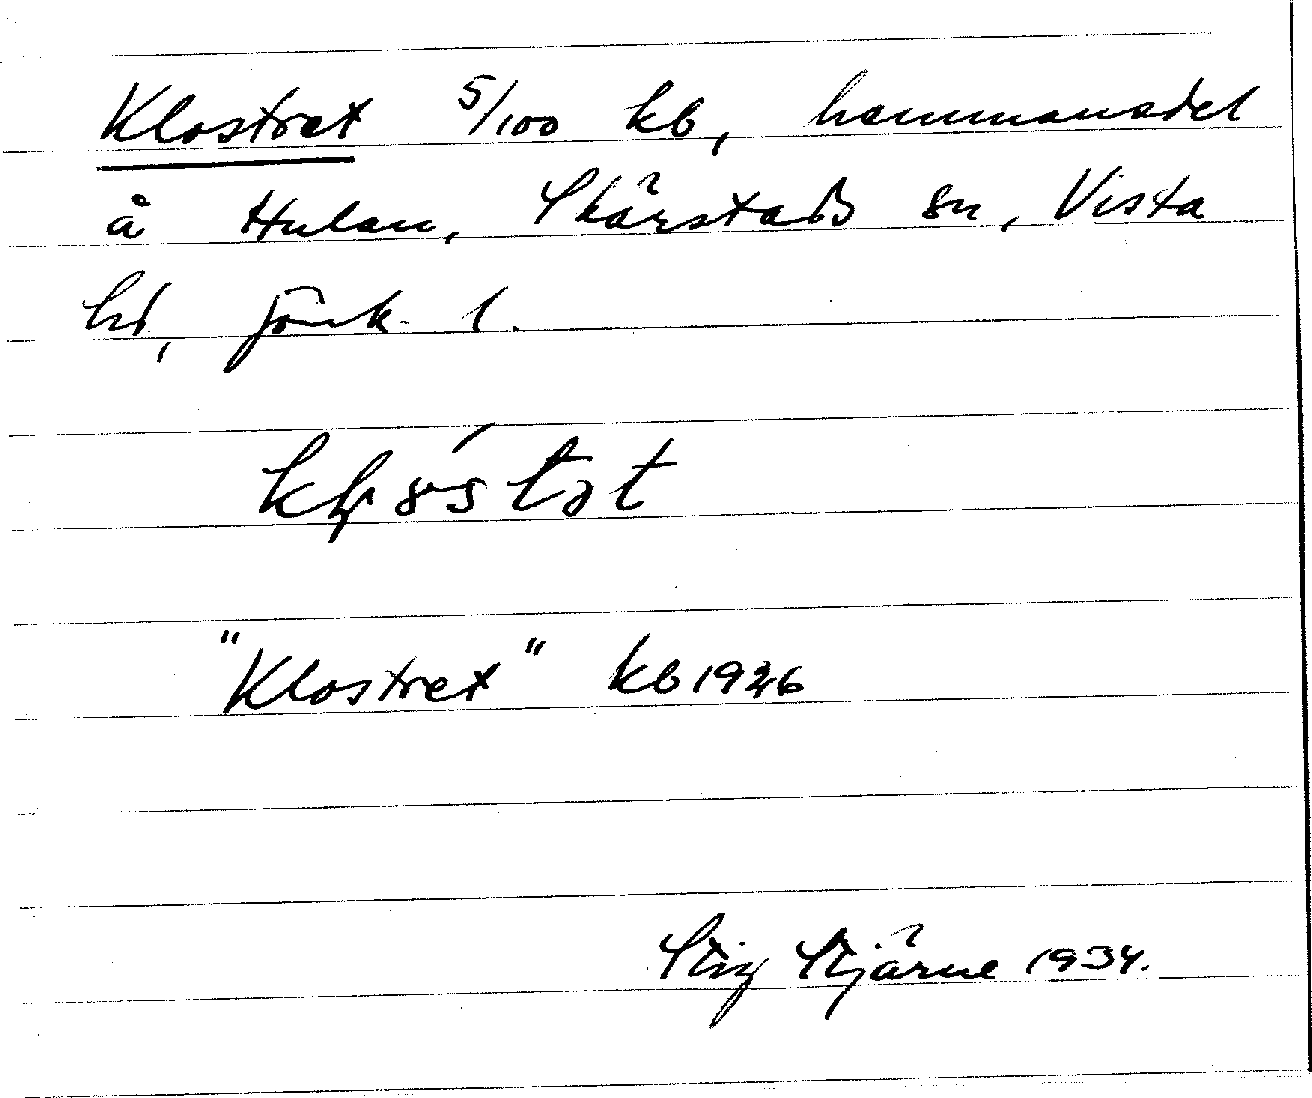 Klostret 5/100 kb, hemmansdel
å Hulan, Skärstads sn, Vista
hd, Jönk. l.
"Klostret" kb 1926
Stig Stjärne 1934.